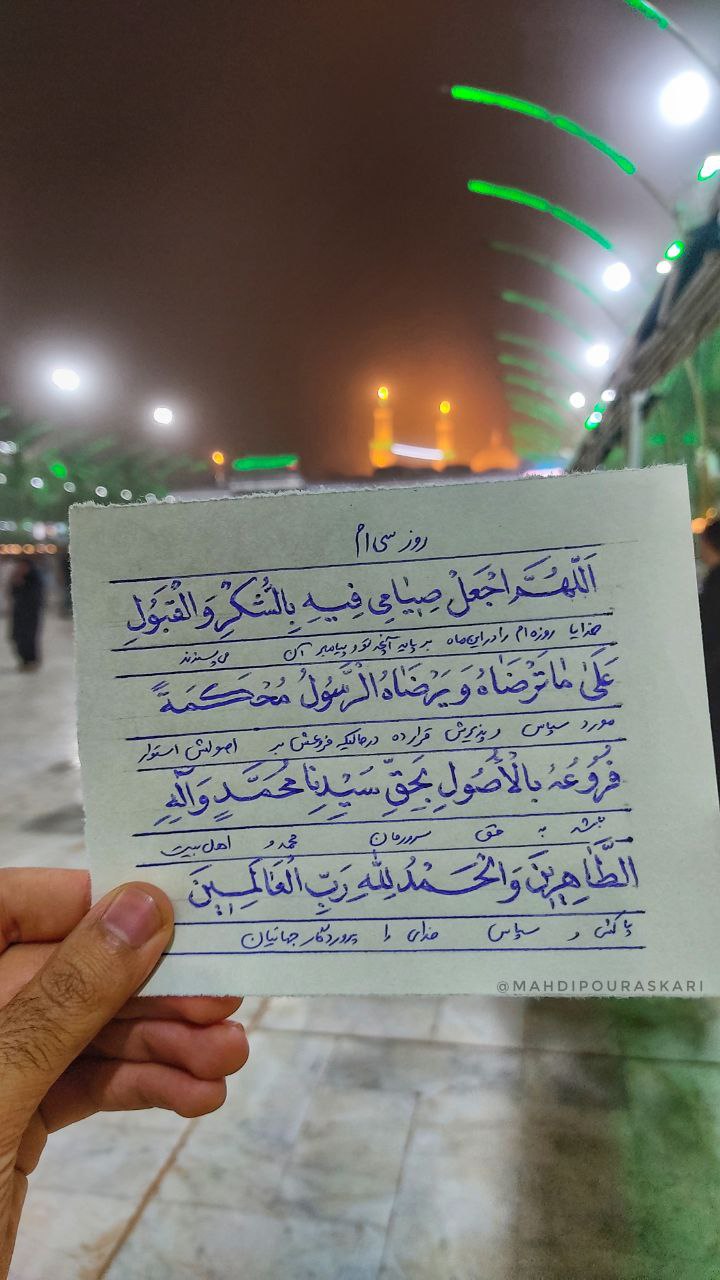 روز سی ام
اَللّهُمَّ اجْعَلْ صِيٰامِي فِيهِ بِالشُّكْرِ وَ الْقَبُولِ
خدایا روزه ام را در این ماه بر پایه آنچه تو و پیامبر آن می پسندند
عَلَىٰ مٰا تَرْضٰاهُ وَ يَرْضٰاهُ الْرَّسُولُ مُحْكَمَةً
مورد سپاس و پذیرش قرار ده درحالیکه فروعش بر اصولش استوار
فُرُوعُهُ بِالْاُصُولِ بِحَقِّ سَيِّدِنٰا مُحَمَّدٍ وَ آلِهِ
باشد به حق سرورمان محمد و اهل بیت
الطَّاهِرِينَ وَ الْحَمْدُ لِلّهِ رَبِّ الْعٰالَمِينَ
پاکش و سپاس خدای را پروردگار جهانیان
@MAHDIPOURASKARI